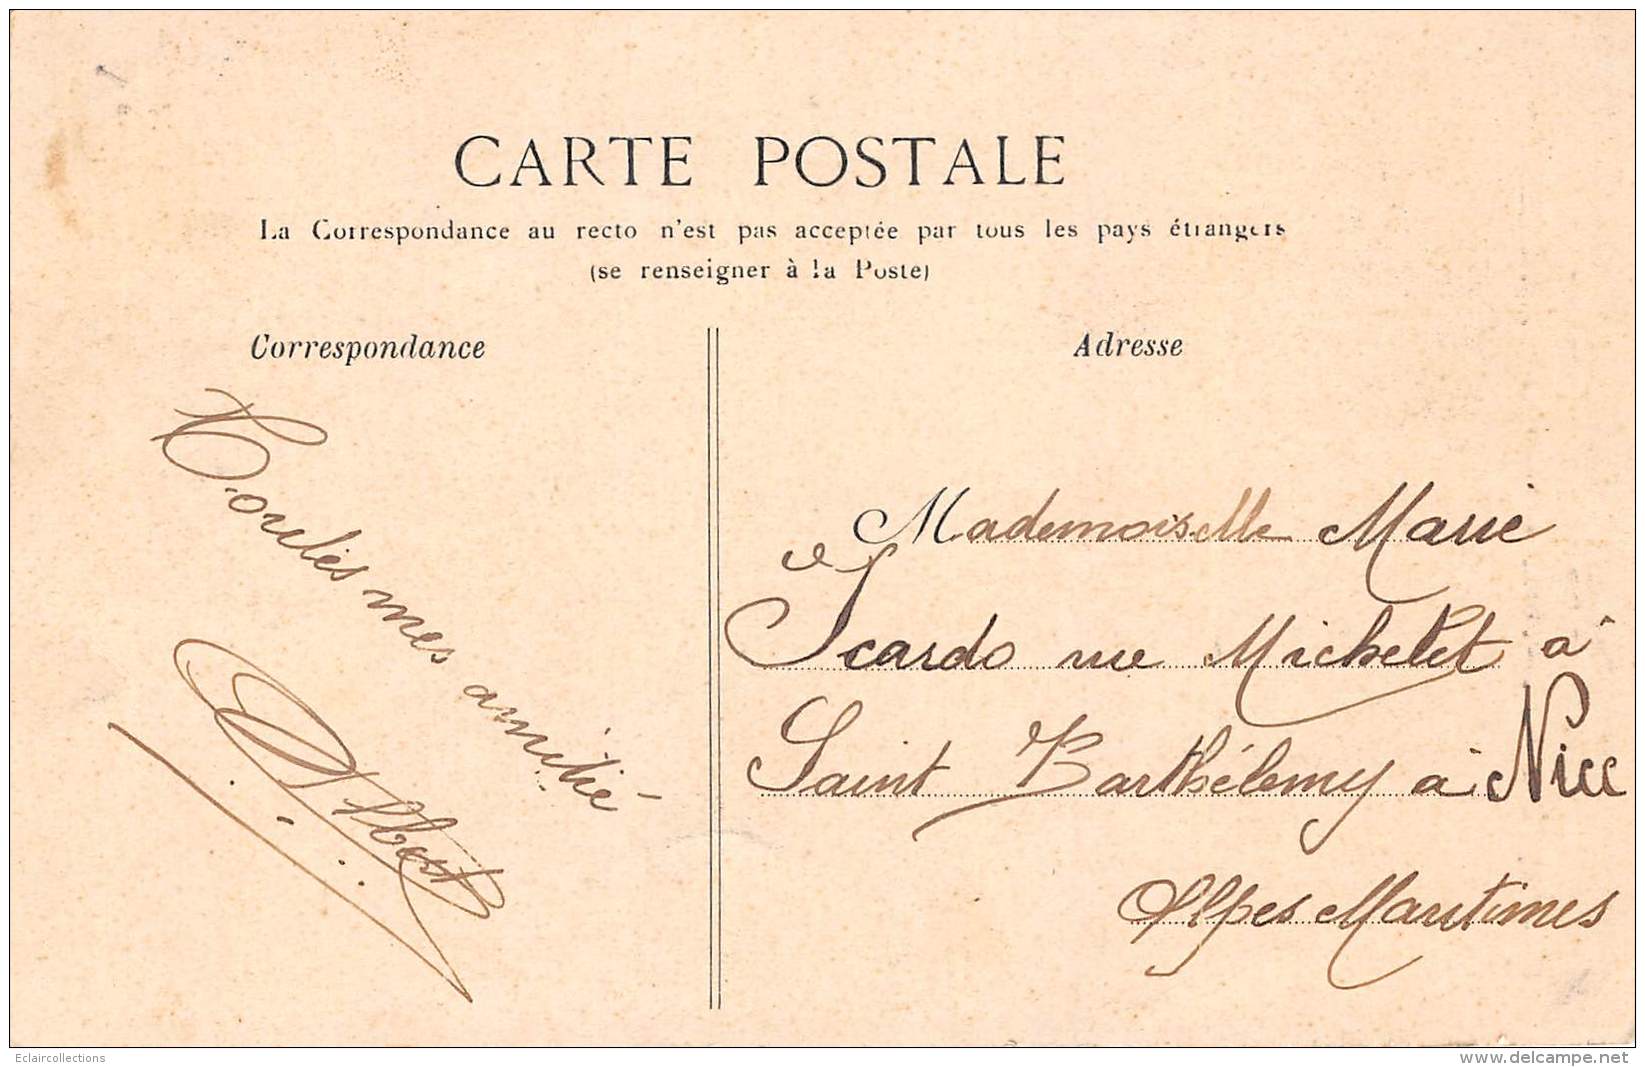 CARTE POSTALE
La Correspondance au recto n'est pas acceptée par tous les pays étrangers
(se renseigner à la Poste)
Correspondance
Toutes mes amitié
Albert
Adresse
Mademoiselle Marie
Icardo rue Michelet à
Saint Barthélemy à Nice
Alpes Maritimes
Eclaircollections
www.delcampe.net